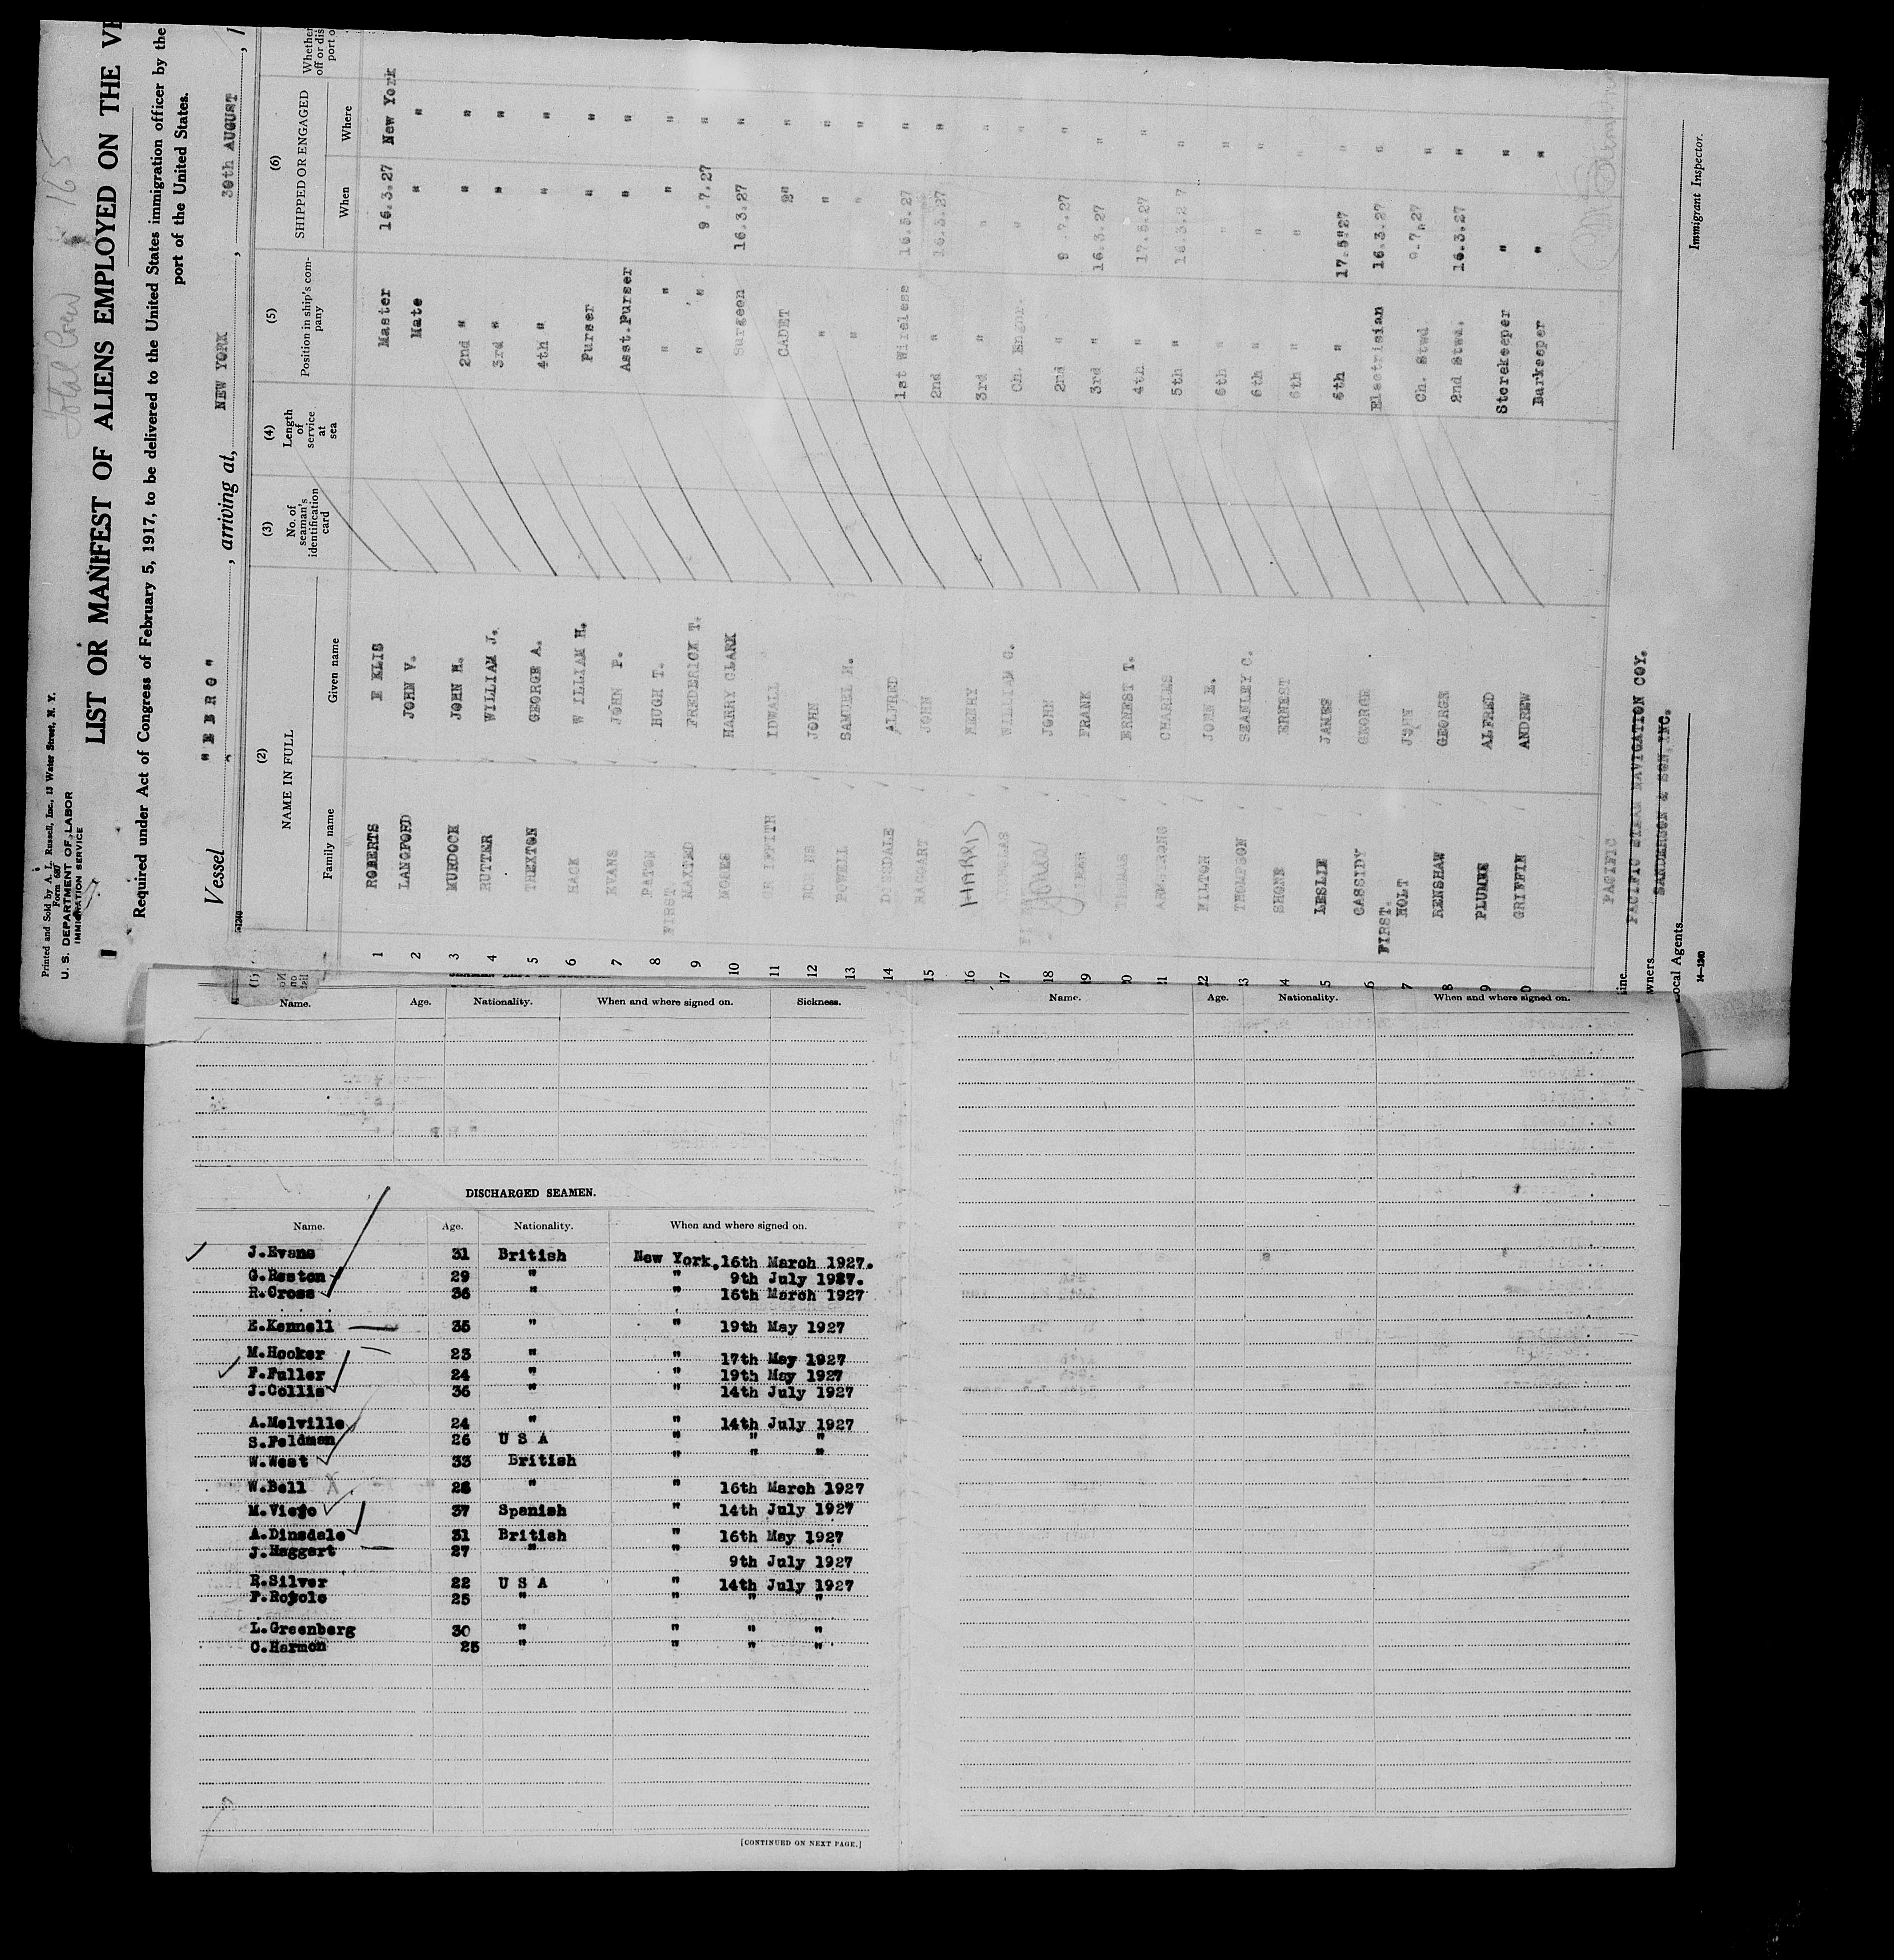 Total Crew 165
Printed and Sold by A. L. Russell, Inc., 13 Water Street, N. Y.
Form 687
U. S. DEPARTMENT OF LABOR
IMMIGRATION SERVICE
LIST OR MANIFEST OF ALIENS EMPLOYED ON THE
Required under Act of Congress of February 5, 1917, to be delivered to the United States immigration officer by the
port of the United States.
Vessel "EBRO", arriving at, NEW YORK, 30th AUGUST
(2) (3) (4) (5) (6)
NAME IN FULL No. of seaman's identification card Length of service at sea Position in ship's company SHIPPED OR ENGAGED Whether
Family name Given name When Where
1 ROBERTS Master 16.3.27 New York
2 LANGFORD JOHN V. Mate " "
3 MURDOCK JOHN H. 2nd " " "
4 RUTTER WILLIAM J. 3rd " " "
5 THEXTON GEORGE A. 4th " " "
6 HACK WILLIAM H. Purser " "
7 EVANS JOHN P. Asst.Purser " "
8 PATON HUGH T. " " "
FIRST
9 MAXTED FREDERICK T. " " 9.7.27 "
10 MOSES HARRY CLARK Surgeon 16.3.27 "
11 GRIFFITH IDWALL CADET " "
12 JOHN " " "
13 POWELL SAMUEL H. " " "
14 DINSDALE ALFRED 1st Wireless "
15 HAGGART JOHN 2nd " 16.3.27 "
16 HARRIS HENRY 3rd " " "
17 WILLIAM G. Ch. Engnr. " "
18 Jones JOHN 2nd " 9.7.27 "
19 FRANK 3rd " 16.3.27 "
20 ERNEST T. 4th " 17.5.27 "
21 ARMSTRONG CHARLES 5th " 16.3.27 "
22 MILTON JOHN E. 6th " " "
23 THOMPSON STANLEY C. 6th " " "
24 SHONE ERNEST 6th " " "
25 LESLIE JAMES 6th " 17.5.27 "
26 CASSIDY GEORGE Electrician 16.3.27 "
FIRST.
27 HOLT JOHN Ch. Stwd 9.7.27 "
28 RENSHAW GEORGE 2nd Stwd. 16.3.27 "
29 PLUMBE ALFRED Storekeeper " "
30 GRIFFIN ANDREW Barkeeper " "
PACIFIC
Line
Owners PACIFIC STEAM NAVIGATION COY.
Local Agents SANDERSON & SON, INC.
14—1240
Immigrant Inspector.
Name. Age. Nationality. When and where signed on. Sickness.
Name. Age. Nationality. When and where signed on.
DISCHARGED SEAMEN.
Name. Age. Nationality. When and where signed on.
J.Evans 31 British New York.16th March 1927.
G.Reston 29 " " 9th July 1927.
R.Cross 36 " " 16th March 1927
E.Kennell 35 " " 19th May 1927
M.Hooker 23 " " 17th May 1927
F.Fuller 24 " " 19th May 1927
J.Collis 36 " " 14th July 1927
A.Melville 24 " " 14th July 1927
S.Feldman 26 U S A " " "
W.West 33 British " " "
W.Bell 28 " " 16th March 1927
M.Viejo 37 Spanish " 14th July 1927
A.Dinsdale 31 British " 16th May 1927
J.Haggart 27 " " 9th July 1927
R.Silver 22 U S A " 14th July 1927
F.Royole 25 " " " "
L.Greenberg 30 " " " "
C.Harmon 25 " " " "
[CONTINUED ON NEXT PAGE.]